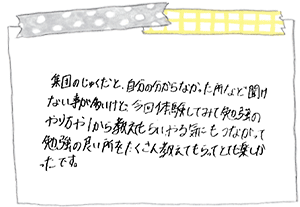 集団のじゅくだと、自分の分からなかった所などを聞け
ない事が多いけど、今回体験してみて勉強の
やり方や1から教えてもらいやる気にもつながって
勉強の良い所をたくさん教えてもらってとても楽しか
ったです。